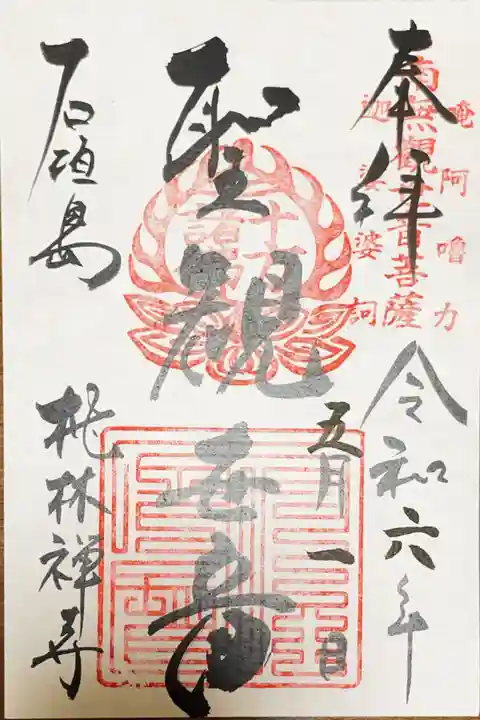 奉拝
南無觀世音菩薩
唵阿嚕力
迦婆婆訶
令和六年
五月一日
聖観世音
石垣島
桃林禅寺